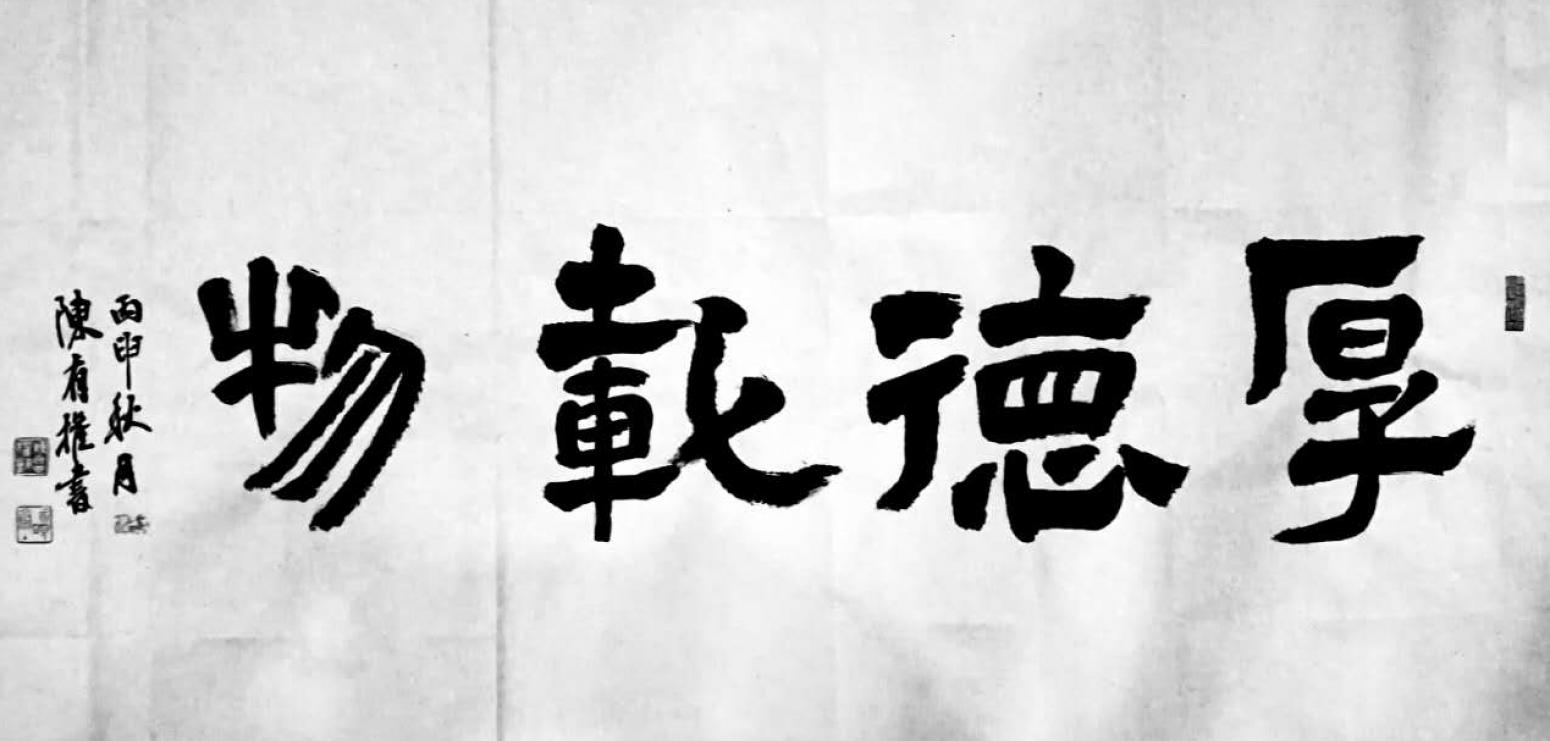 厚德載物
丙申秋月
陳有權書